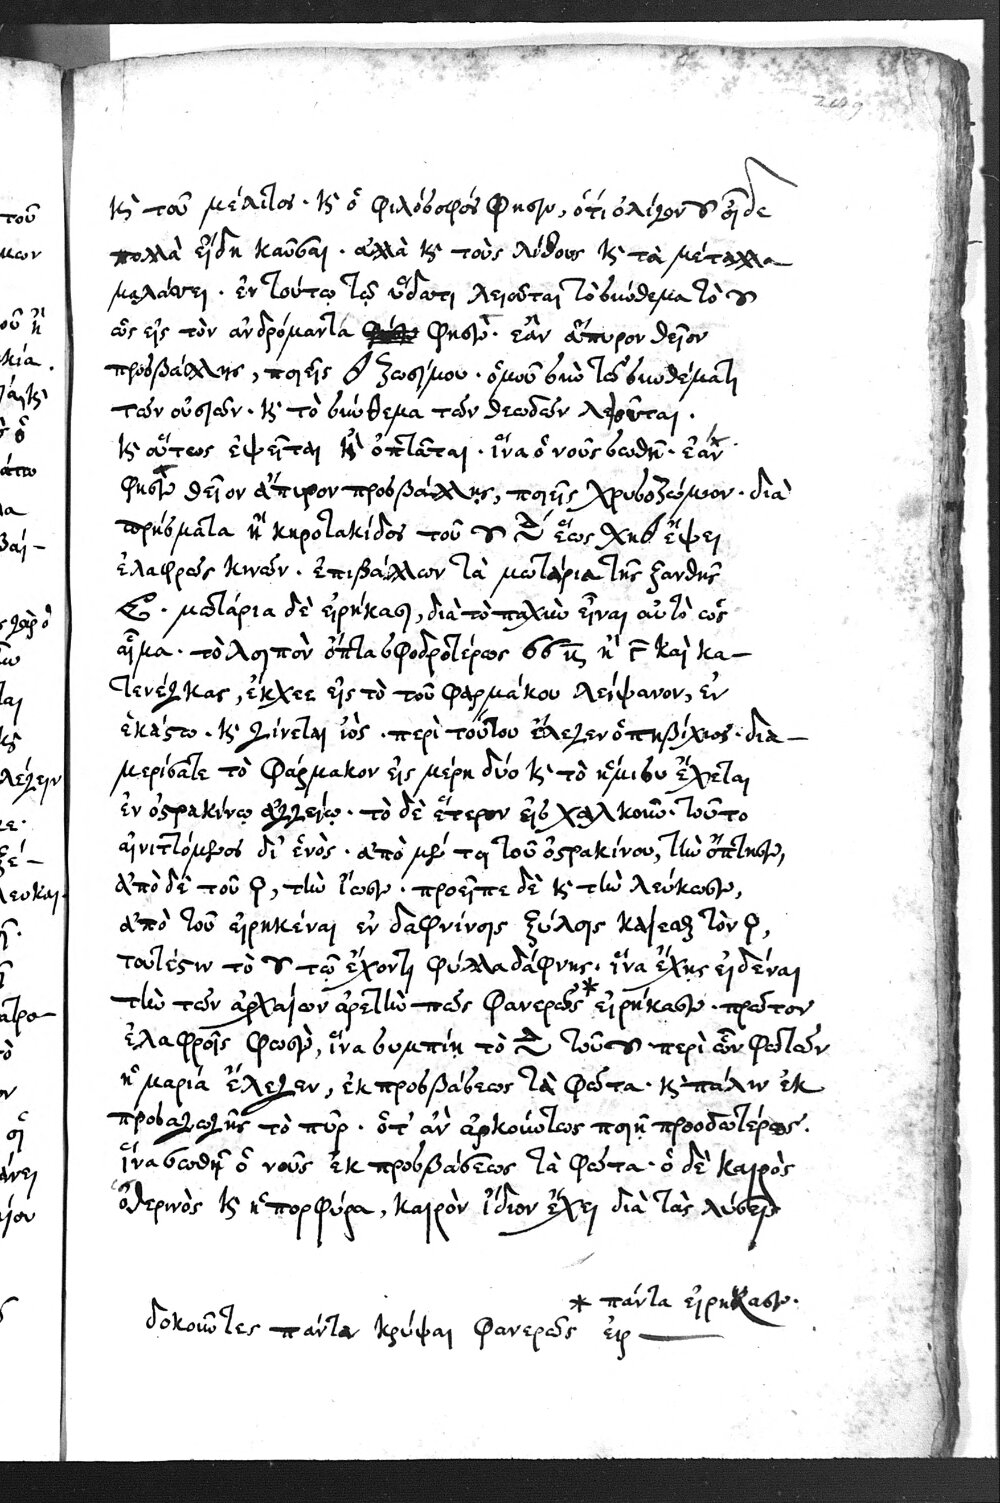 κὶ τοῦ μέλιτος · κὶ ὁ φιλόσοφός φησιν, ὅτι ὀλίγον οἶδε
πολλὰ εἴδη καῦσαι · ἀλλὰ κὶ τοὺς λίθους κὶ τὰ μέταλλα
μαλάσσει · ἐν τούτῳ τῷ ὕδατι λειοῦται τὸ σύνθεμα τὸ
ὡς εἰς τὸν ἀνδρόμαντα φησίν · ἐὰν ἄπυρον θεῖον
προσβάλλῃς, ποιεῖς ζωσίμου · ὁμοῦ σὺν τῷ συνθέματι
τῶν οὐσιῶν · κὶ τὸ σύνθεμα τῶν θειωδῶν λειοῦται ·
κὶ οὕτως ἑψεῖται κὶ ὀπτᾶται · ἵνα ὁ νοῦς σωθῇ · ἐὰν
φησὶν θεῖον ἄπυρον προσβάλλῃς, ποιεῖς χρυσοζώμιον · διὰ
πρήσματα ἢ κηροτακίδος τοῦ ἕως ἕψει
ἐλαφρῶς κινῶν · ἐπιβάλλων τὰ μωτάρια τῆς ξανθῆς
μωτάρια δὲ εἰρήκασι, διὰ τὸ παχὺν εἶναι αὐτὸ ὡς
αἷμα · τὸ λοιπὸν ὄπτα σφοδροτέρως ἢ καὶ κα–
τενέγκας, ἔκχεε εἰς τὸ τοῦ φαρμάκου λείψανον, ἐν
ἑκάστῳ · κὶ γίνεται ἰὸς · περὶ τούτου ἔλεγεν ὁ πηβίχιος · δια–
μερίσατε τὸ φάρμακον εἰς μέρη δύο κὶ τὸ ἥμισυ ἔχεται
ἐν ὀστρακίνῳ ἀγγείῳ · τὸ δὲ ἕτερον εἰς χαλκοῦν · τοῦτο
αἰνιττόμενος δι' ἑνός · ἀπὸ μέν τοι τοῦ ὀστρακίνου, τὴν ὄπτησιν,
ἀπὸ δὲ τοῦ , τὴν ἴωσιν · προεῖπε δὲ κὶ τὴν λεύκωσιν,
ἀπὸ τοῦ εἰρηκέναι ἐν δαφνίνοις ξύλοις καῦσαι τὸν ,
τουτέστιν τὸ τῷ ἔχοντι φύλλα δάφνης · ἵνα ἔχῃς εἰδέναι
τὴν τῶν ἀρχαίων ἀρετὴν πῶς φανερῶς * εἰρήκασιν · πρῶτον
ἐλαφροῖς φωσὶν, ἵνα συμπίῃ τὸ τοῦ · περὶ ὧν φώτων
ἡ μαρία ἔλεγεν, ἐκ προσβάσεως τὰ φῶτα · κὶ πάλιν ἐκ
προσαγωγῆς τὸ πῦρ · ὅτ' ἂν ἀρκούντως ποιῇ προοδωτέρως ·
ἵνα σωθῇ ὁ νοῦς ἐκ προσβάσεως τὰ φῶτα · ὁ δὲ καιρὸς
ὁ θερινὸς κὶ ἡ πορφύρα, καιρὸν ἴδιον ἔχει διὰ τὰς λύσεις
* πάντα εἰρήκασιν ·
δοκοῦντες πάντα κρύψαι φανερῶς εἰρ —